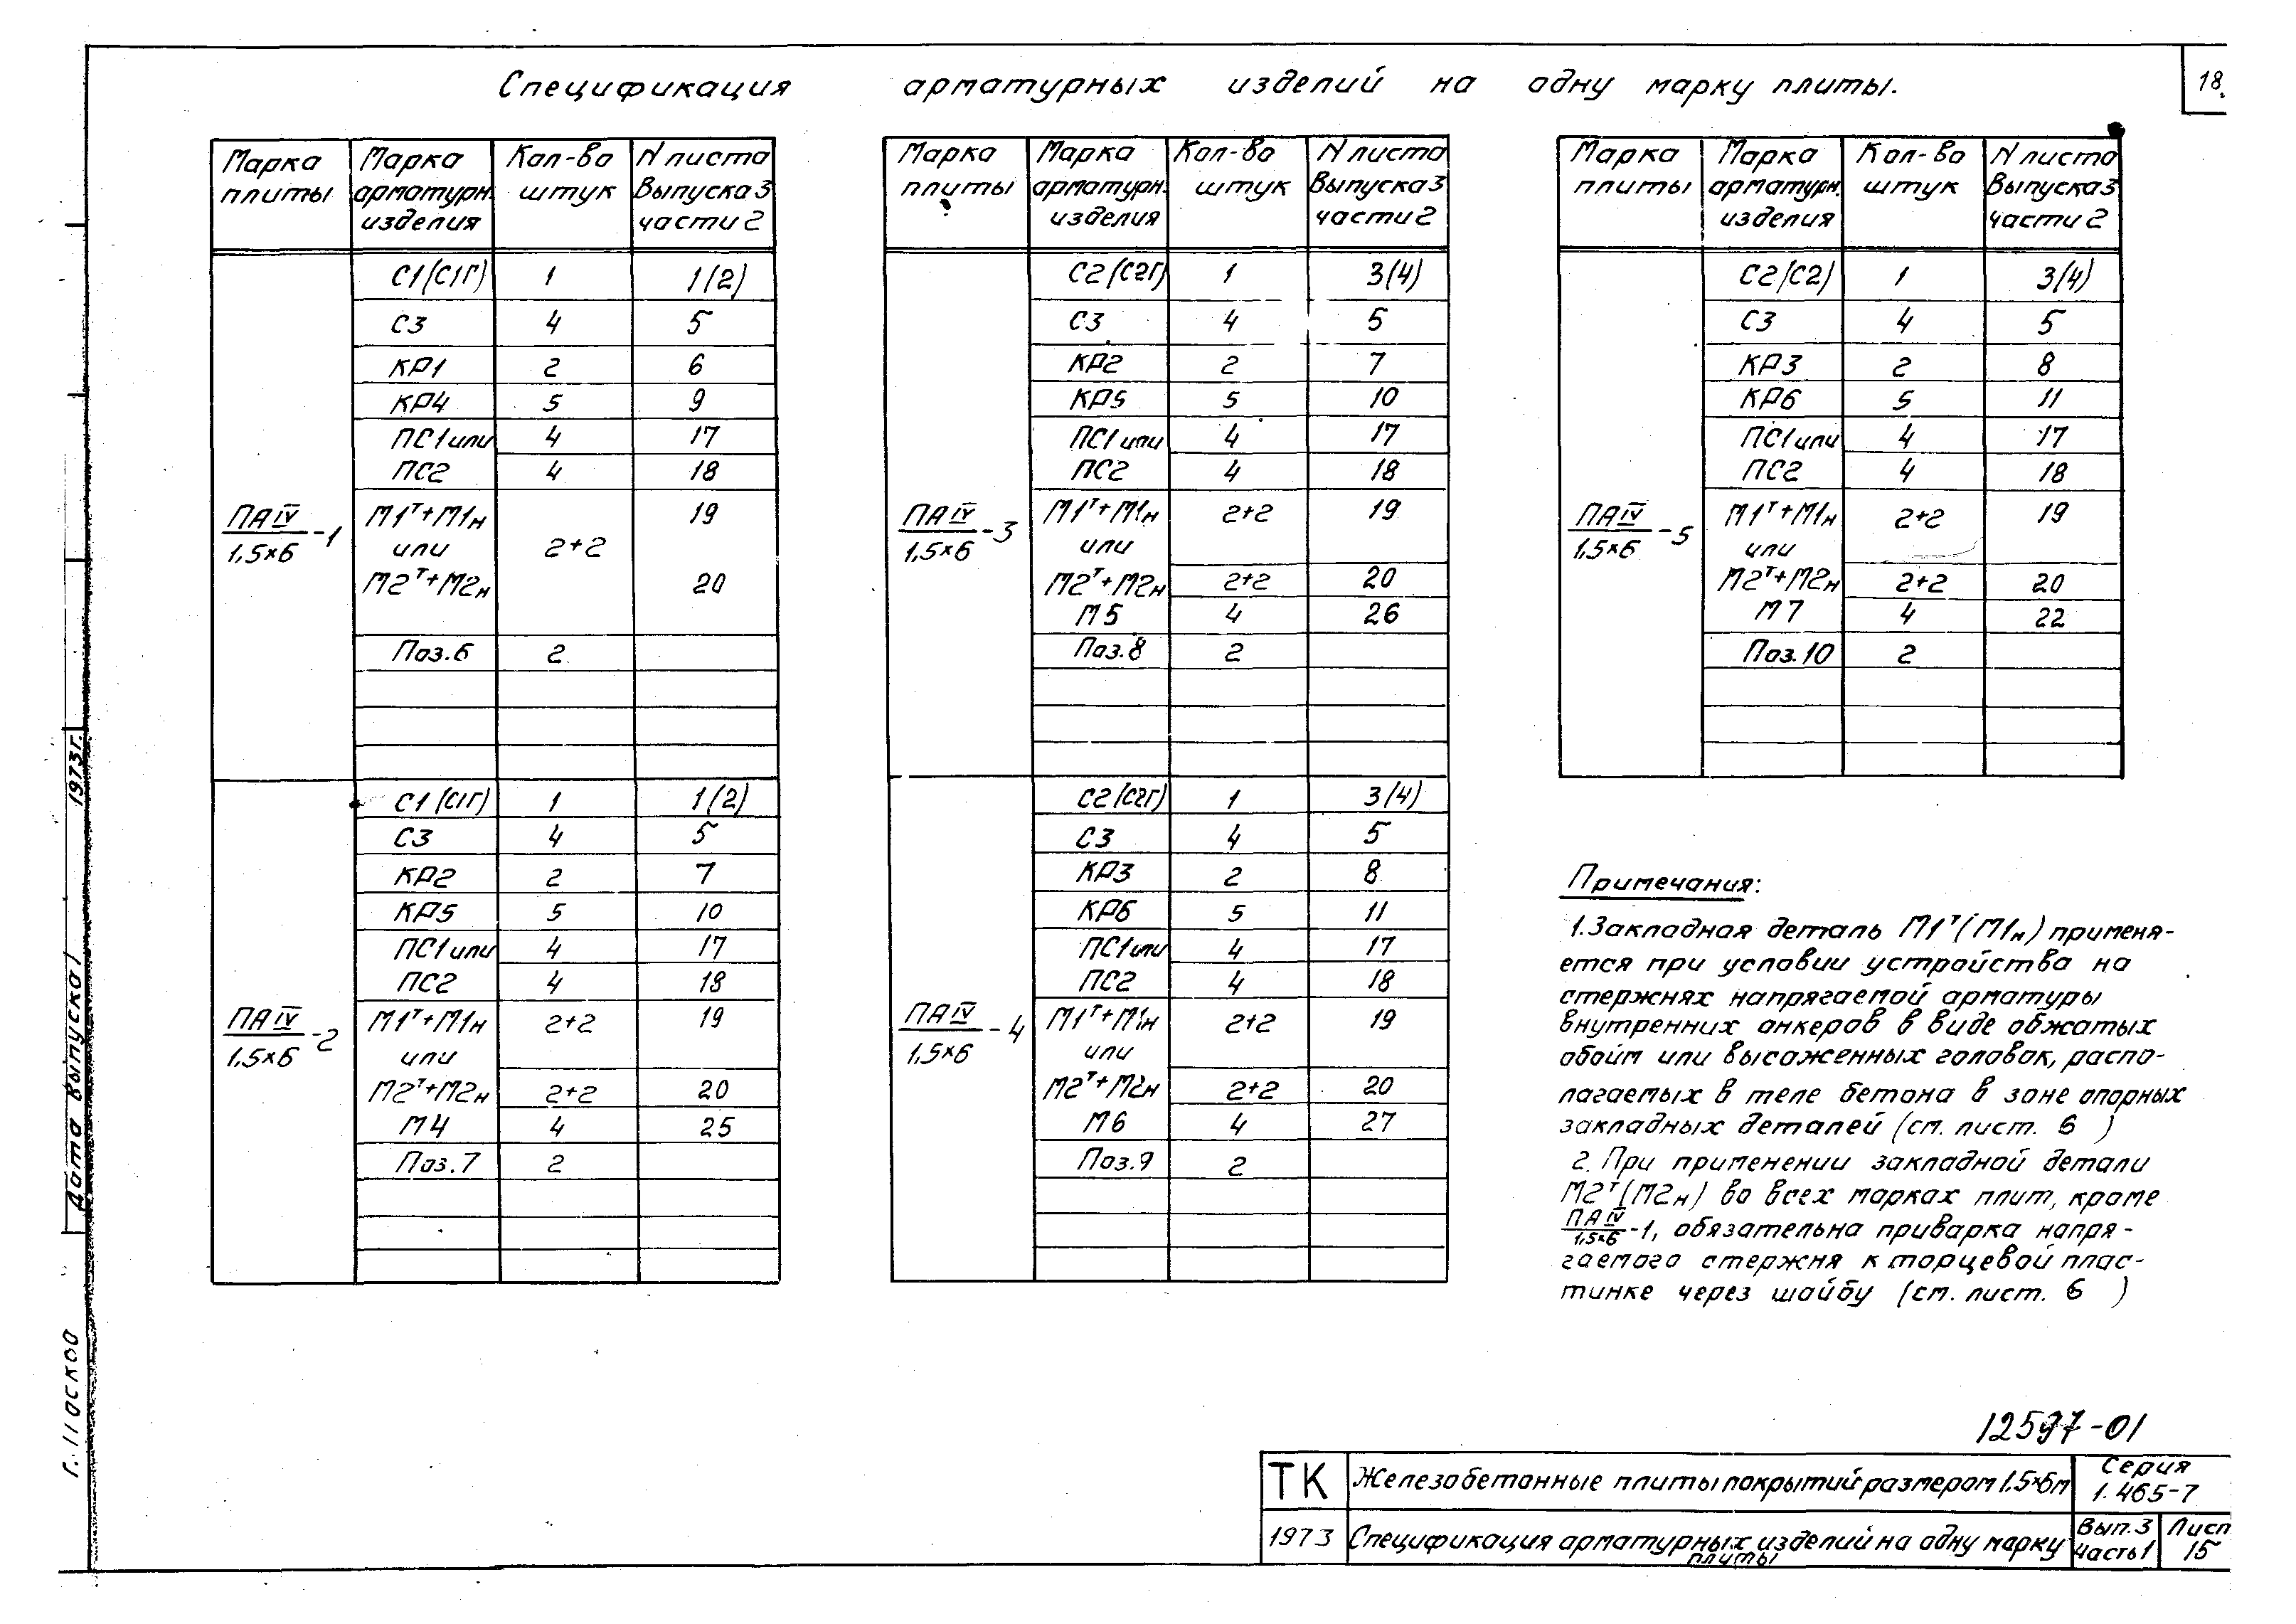 18
Спецификация арматурных изделий на одну марку плиты.
Марка плиты | Марка арматурн. изделия | Кол-во штук | N листа Выпуска 3 части 2
ПАIV/1,5×6 -1
С1(С1Г) 1 1(2)
С3 4 5
КР1 2 6
КР4 5 9
ПС1 или 4 17
ПС2 4 18
М1т+М1н 19
или 2+2
М2т+М2н 20
Поз.6 2
ПАIV/1,5×6 -2
С1(С1Г) 1 1(2)
С3 4 5
КР2 2 7
КР5 5 10
ПС1 или 4 17
ПС2 4 18
М1т+М1н 2+2 19
или
М2т+М2н 2+2 20
М4 4 25
Поз.7 2
Марка плиты | Марка арматурн. изделия | Кол-во штук | N листа Выпуска 3 части 2
ПАIV/1,5×6 -3
С2(С2Г) 1 3(4)
С3 4 5
КР2 2 7
КР5 5 10
ПС1 или 4 17
ПС2 4 18
М1т+М1н 2+2 19
или
М2т+М2н 2+2 20
М5 4 26
Поз.8 2
ПАIV/1,5×6 -4
С2(С2Г) 1 3(4)
С3 4 5
КР3 2 8
КР6 5 11
ПС1 или 4 17
ПС2 4 18
М1т+М1н 2+2 19
или
М2т+М2н 2+2 20
М6 4 27
Поз.9 2
Марка плиты | Марка арматурн. изделия | Кол-во штук | N листа Выпуска 3 части 2
ПАIV/1,5×6 -5
С2(С2) 1 3(4)
С3 4 5
КР3 2 8
КР6 5 11
ПС1 или 4 17
ПС2 4 18
М1т+М1н 2+2 19
или
М2т+М2н 2+2 20
М7 4 22
Поз.10 2
Примечания:
1. Закладная деталь М1т(М1н) применя-
ется при условии устройства на
стержнях напрягаемой арматуры
внутренних анкеров в виде обжатых
обойм или высаженных головок, распо-
лагаемых в теле бетона в зоне опорных
закладных деталей (см. лист. 6 )
2. При применении закладной детали
М2т(М2н) во всех марках плит, кроме
ПАIV/1,5×6 -1, обязательна приварка напря-
гаемого стержня к торцевой плас-
тинке через шайбу (см. лист. 6 )
12597-01
ТК Железобетонные плиты покрытий размером 1,5×6м Серия 1.465-7
1973 Спецификация арматурных изделий на одну марку плиты Вып.3 Часть 1 Лист 15
Дата выпуска 1973г.